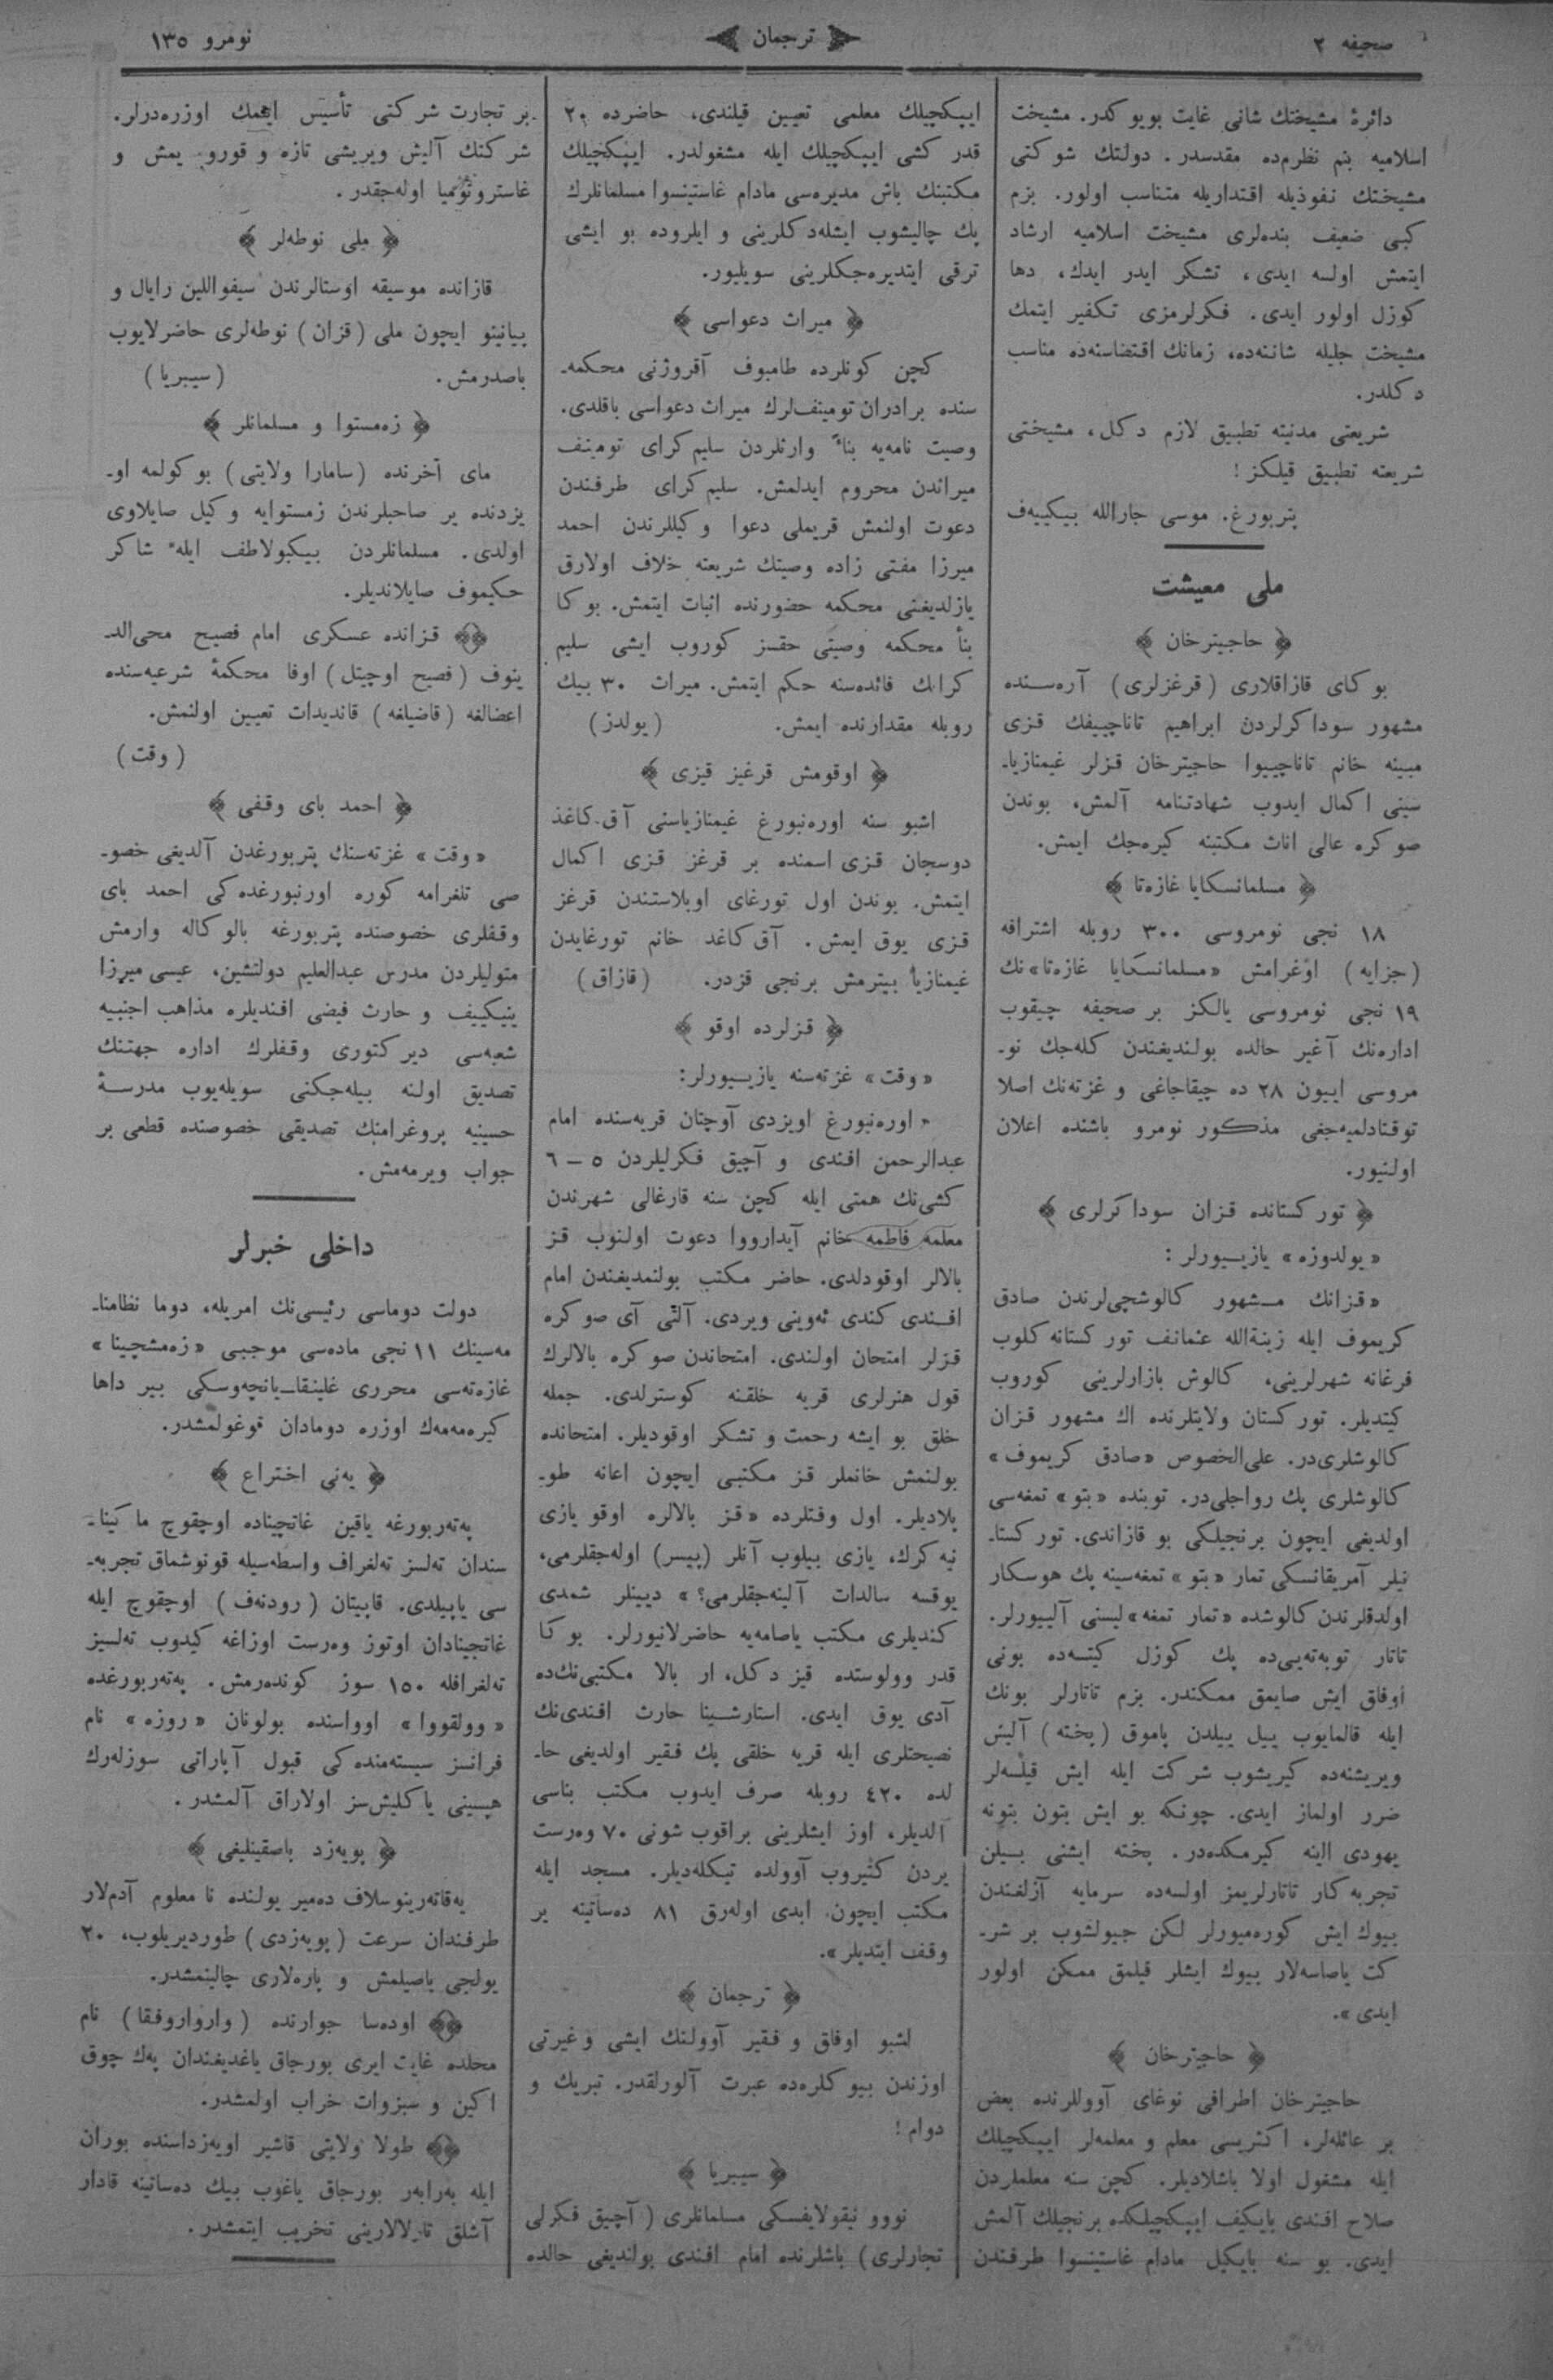 صحیفه ٢
ترجمان
نومرو ١٣٥
دائرهٔ مشیختك شانی غایت بویوكدر. مشیخت
اسلامیه بنم نظرم‌ده مقدسدر. دولتك شوكتی
مشیختك نفوذیله اقتداریله متناسب اولور. بزم
كبی ضعیف بنده‌لری مشیخت اسلامیه ارشاد
ایتمش اولسه ایدی، تشكر ایدر ایدك، دها
كوزل اولور ایدی. فكرلرمزی تكفیر ایتمك
مشیخت جلیله شاننه‌ده، زمانك اقتضاسنه‌ده مناسب
دكلدر.
شریعتی مدنیته تطبیق لازم دكل، مشیختی
شریعته تطبیق قیلكز!
پتربورغ. موسی جارالله بیكییه‌ف
ملی معیشت
﴿ حاجیترخان ﴾
بوكای قازاقلاری (قرغزلری) آره‌سنده
مشهور سوداكرلردن ابراهیم تاناچییفك قزی
مبینه خانم تاناچییوا حاجیترخان قزلر غیمنازیاـ
سینی اكمال ایدوب شهادتنامه آلمش، بوندن
صوكره عالی اناث مكتبنه كیره‌جك ایمش.
﴿ مسلمانسكایا غازه‌تا ﴾
١٨ نجی نومروسی ٣٠٠ روبله اشترافه
(جزایه) اوغرامش «مسلمانسكایا غازه‌تا»نك
١٩ نجی نومروسی یالكز بر صحیفه چیقوب
اداره‌نك آغیر حالده بولندیغندن كله‌جك نوـ
مروسی اییون ٢٨ ده چیقاجاغی و غزته‌نك اصلا
توقتادلمیه‌جغی مذكور نومرو باشنده اعلان
اولنیور.
﴿ توركستانده قزان سوداكرلری ﴾
«یولدوزه» یازیـیورلر :
«قزانك مشهور كالوشچی‌لرندن صادق
كریموف ایله زینةالله عثمانف توركستانه كلوب
فرغانه شهرلرینی، كالوش بازارلرینی كوروب
كیتدیلر. توركستان ولایتلرنده اك مشهور قزان
كالوشلری‌در. علی‌الخصوص «صادق كریموف»
كالوشلری پك رواجلی‌در. توبنده «بتو» تمغه‌سی
اولدیغی ایچون برنجیلكی بو قازاندی. توركستاـ
نیلر آمریقانسكی تمار «بتو» تمغه‌سینه پك هوسكار
اولدقلرندن كالوشده «تمار تمغه» لیسنی آلییورلر.
تاتار توبه‌ته‌یی‌ده پك كوزل كیتسه‌ده بونی
اوفاق ایش صایمق ممكندر. بزم تاتارلر بونك
ایله قالمایوب ییل ییلدن پاموق (پخته) آلیش
ویریشنه‌ده كیریشوب شركت ایله ایش قیلسه‌لر
ضرر اولماز ایدی. چونكه بو ایش بتون بتونه
یهودی الینه كیرمكده‌در. پخته ایشنی بیلن
تجربه‌كار تاتارلریمز اولسه‌ده سرمایه آزلغندن
بیوك ایش كوره‌میورلر لكن جیولشوب بر شرـ
كت یاصاسه‌لار بیوك ایشلر قیلمق ممكن اولور
ایدی».
﴿ حاجیترخان ﴾
حاجیترخان اطرافی نوغای آووللرنده بعض
بر عائله‌لر، اكثریسی معلم و معلمه‌لر ایپكچیلك
ایله مشغول اولا باشلادیلر. كچن سنه معلملردن
صلاح افندی بایكیف ایپكچیلكده برنجیلك آلمش
ایدی. بو سنه بایكیل مادام غاستینسوا طرفندن
ایپكچیلك معلمی تعیین قیلندی، حاضرده ٢٠
قدر كشی ایپكچیلك ایله مشغولدر. ایپكچیلك
مكتبنك باش مدیره‌سی مادام غاستینسوا مسلمانلرك
پك چالیشوب ایشله‌دكلرینی و ایلروده بو ایشی
ترقی ایتدیره‌جكلرینی سویلیور.
﴿ میراث دعواسی ﴾
كچن كونلرده طامبوف آقروژنی محكمه‌ـ
سنده برادران تومینف‌لرك میراث دعواسی باقلدی.
وصیت نامه‌یه بناءً وارثلردن سلیم كرای تومینف
میراثدن محروم ایدلمش. سلیم كرای طرفندن
دعوت اولنمش قریملی دعوا وكیللرندن احمد
میرزا مفتی زاده وصیتك شریعته خلاف اولارق
یازلدیغنی محكمه حضورنده اثبات ایتمش. بوكا
بنأ محكمه وصیتی حقسز كوروب ایشی سلیم
كرانك فائده‌سنه حكم ایتمش. میراث ٣٠ بیك
روبله مقدارنده ایمش. (یولدز)
﴿ اوقومش قرغیز قیزی ﴾
اشبو سنه اوره‌نبورغ غیمنازیاسنی آق كاغذ
دوسجان قزی اسمنده بر قرغز قزی اكمال
ایتمش. بوندن اول تورغای اوبلاستندن قرغز
قزی یوق ایمش. آق كاغد خانم تورغایدن
غیمنازیا بیترمش برنجی قزدر. (قازاق)
﴿ قزلرده اوقو ﴾
«وقت» غزته‌سنه یازیـیورلر:
«اوره‌نبورغ اویزدی آوچنان قریه‌سنده امام
عبدالرحمن افندی و آچیق فكرلیلردن ٥ – ٦
كشی‌نك همتی ایله كچن سنه قارغالی شهرندن
معلمه فاطمه خانم آیدارووا دعوت اولنوب قز
بالالر اوقودلدی. حاضر مكتب بولنمدیغندن امام
افندی كندی ئه‌وینی ویردی. آلتی آی صوكره
قزلر امتحان اولندی. امتحاندن صوكره بالالرك
قول هنرلری قریه خلقنه كوسترلدی. جمله
خلق بو ایشه رحمت و تشكر اوقودیلر. امتحانده
بولنمش خانملر قز مكتبی ایچون اعانه طوـ
پلادیلر. اول وقتلرده «قز بالالره اوقو یازی
نیه كرك، یازی بیلوب آنلر (پیسر) اوله‌جقلرمی،
یوقسه سالدات آلینه‌جقلرمی؟» دیینلر شمدی
كندیلری مكتب یاصامه‌یه حاضرلانیورلر. بوكا
قدر وولوستده قیز دكل، ار بالا مكتبی‌نك‌ده
آدی یوق ایدی. استارشینا حارث افندی‌نك
نصیحتلری ایله قریه خلقی پك فقیر اولدیغی حاـ
لده ٤٢٠ روبله صرف ایدوب مكتب بناسی
آلدیلر، اوز ایشلرینی براقوب شونی ٧٠ وه‌رست
یردن كتیروب آوولده تیكله‌دیلر. مسجد ایله
مكتب ایچون ابدی اوله‌رق ٨١ ده‌ساتینه یر
وقف ایتدیلر».
﴿ ترجمان ﴾
اشبو اوفاق و فقیر آوولنك ایشی وغیرتی
اوزندن بیوكلره‌ده عبرت آلورلقدر. تبریك و
دوام!
﴿ سیبریا ﴾
نووو نیقولایفسكی مسلمانلری (آچیق فكرلی
تجارلری) باشلرنده امام افندی بولندیغی حالده
بر تجارت شركتی تأسیس ایتمك اوزره‌درلر.
شركتك آلیش ویریشی تازه و قورو یمش و
غاسترونومیا اوله‌جقدر.
﴿ ملی نوطه‌لر ﴾
قازانده موسیقه اوستالرندن سیفواللین رایال و
پیانینو ایچون ملی (قزان) نوطه‌لری حاضرلایوب
باصدرمش. (سیبریا)
﴿ زه‌مستوا و مسلمانلر ﴾
مای آخرنده (سامارا ولایتی) بوكولمه اوـ
یزدنده یر صاحبلرندن زمستوایه وكیل صایلاوی
اولدی. مسلمانلردن بیكبولاطف ایله شاكر
حكیموف صایلاندیلر.
قزانده عسكری امام فصیح محی‌الدـ
ینوف (فصیح اوچیتل) اوفا محكمهٔ شرعیه‌سنده
اعضالغه (قاضیلغه) قاندیدات تعیین اولنمش.
(وقت)
﴿ احمد بای وقفی ﴾
«وقت» غزته‌سنك پتربورغدن آلدیغی خصوـ
صی تلغرامه كوره اورنبورغده‌كی احمد بای
وقفلری خصوصنده پتربورغه بالوكاله وارمش
متولیلردن مدرس عبدالعلیم دولتشین، عیسی میرزا
ینیكییف و حارث فیضی افندیلره مذاهب اجنبیه
شعبه‌سی دیركتوری وقفلرك اداره جهتنك
تصدیق اولنه بیله‌جكنی سویله‌یوب مدرسـهٔ
حسینیه پروغرامنك تصدیقی خصوصنده قطعی بر
جواب ویرمه‌مش.
داخلی خبرلر
دولت دوماسی رئیسی‌نك امریله، دوما نظامناـ
مه‌سینك ١١ نجی ماده‌سی موجبی «زه‌مشچینا»
غازه‌ته‌سی محرری غلینقا–یانچه‌وسكی بیر داها
كیره‌مه‌مه‌ك اوزره دومادان قوغولمشدر.
﴿ یه‌نی اختراع ﴾
په‌ته‌ربورغه یاقین غاتچیناده اوچقوچ ماكیناـ
سندان ته‌لسز ته‌لغراف واسطه‌سیله قونوشماق تجربه‌ـ
سی یاپیلدی. قاپیتان (رودنه‌ف) اوچقوچ ایله
غاتچینادان اوتوز وه‌رست اوزاغه كیدوب ته‌لسیز
ته‌لغرافله ١٥٠ سوز كونده‌رمش. په‌ته‌ربورغده
«وولقووا» اوواسنده بولونان «روزه» نام
فرانسز سیسته‌منده‌كی قبول آپاراتی سوزله‌رك
هپسینی یاكلیش‌سز اولاراق آلمشدر.
﴿ پویه‌زد باصقینلیغی ﴾
یه‌قاته‌رینوسلاف ده‌میر یولنده نا معلوم آدم‌لار
طرفندان سرعت (پویه‌زدی) طوردیریلوب، ٢٠
یولجی باصیلمش و پاره‌لاری چالینمشدر.
اوده‌سا جوارنده (وارواروفقا) نام
محلده غایت ایری بورجاق یاغدیغندان په‌ك چوق
اكین و سبزوات خراب اولمشدر.
طولا ولایتی قاشیر اویه‌زداسنده بوران
ایله به‌رابه‌ر بورجاق یاغوب بیك ده‌ساتینه قادار
آشلق تارلالارینی تخریب ایتمشدر.